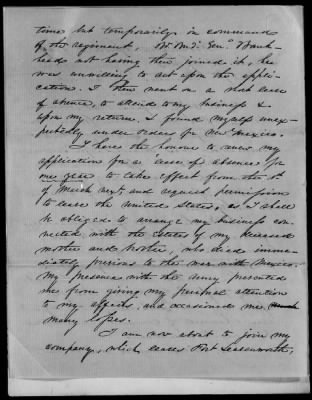 time but temporarily in command
of the regiment, Bt. Maj. Genl. Bank-
head not having then joined it, he
was unwilling to act upon the appli-
cation. I then went on a short leave
of absence, to attend to my business &
upon my return, I found myself unex-
pectedly under orders for New Mexico.
I have the honour to renew my
application for a leave of absence for
one year to take effect from the 1st
of March next and request permission
to leave the United States, as I shall
be obliged to arrange my business con-
nected with the estates of my deceased
mother and brother, who died imme-
diately previous to the war with Mexico.
My presence with the army prevented
me from giving my personal attention
to my affairs, and occasioned me
many losses.
I am now about to join my
company, which leaves Fort Leavenworth,